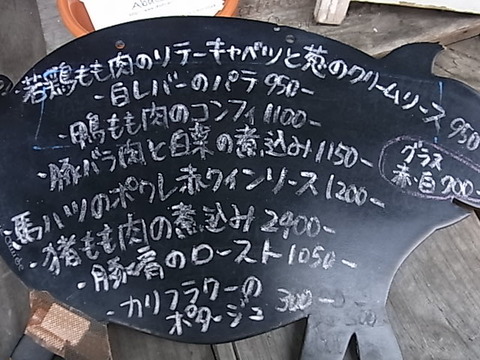 ・若鶏もも肉のソテーキャベツと葱のクリームソース 950
・白レバーのパテ 950-
・鴨もも肉のコンフィ 1100-
・豚バラ肉と白菜の煮込み 1150-
・馬ハツのポワレ赤ワインソース 1200-
・猪もも肉の煮込み 2400-
・豚肩のロースト 1050-
・カリフラワーの
ポタージュ 300-
グラス
赤・白 700-